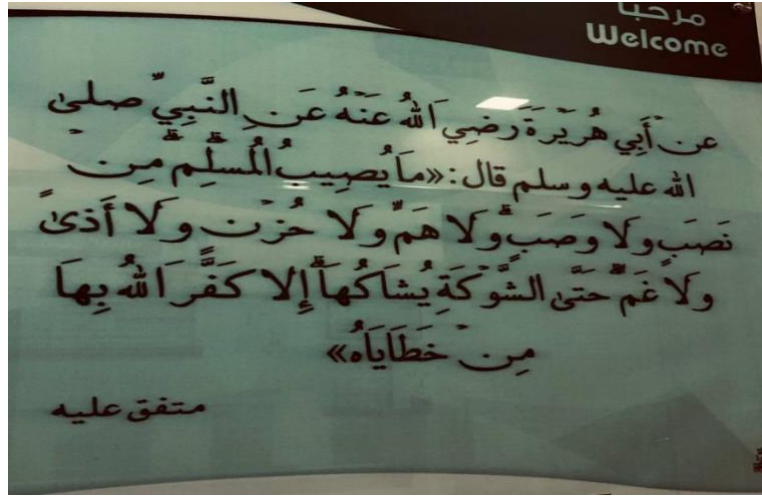 مرحبا
Welcome
عن أَبِي هُرَيْرَةَ رَضِيَ اللهُ عَنْهُ عَنِ النَّبِيِّ صلى
الله عليه وسلم قال: «مَا يُصِيبُ الْمُسْلِمَ مِنْ
نَصَبٍ وَلَا وَصَبٍ وَلَا هَمٍّ وَلَا حُزْنٍ وَلَا أَذًى
وَلَا غَمٍّ حَتَّى الشَّوْكَةِ يُشَاكُهَا إِلا كَفَّرَ اللهُ بِهَا
مِنْ خَطَايَاهُ»
متفق عليه